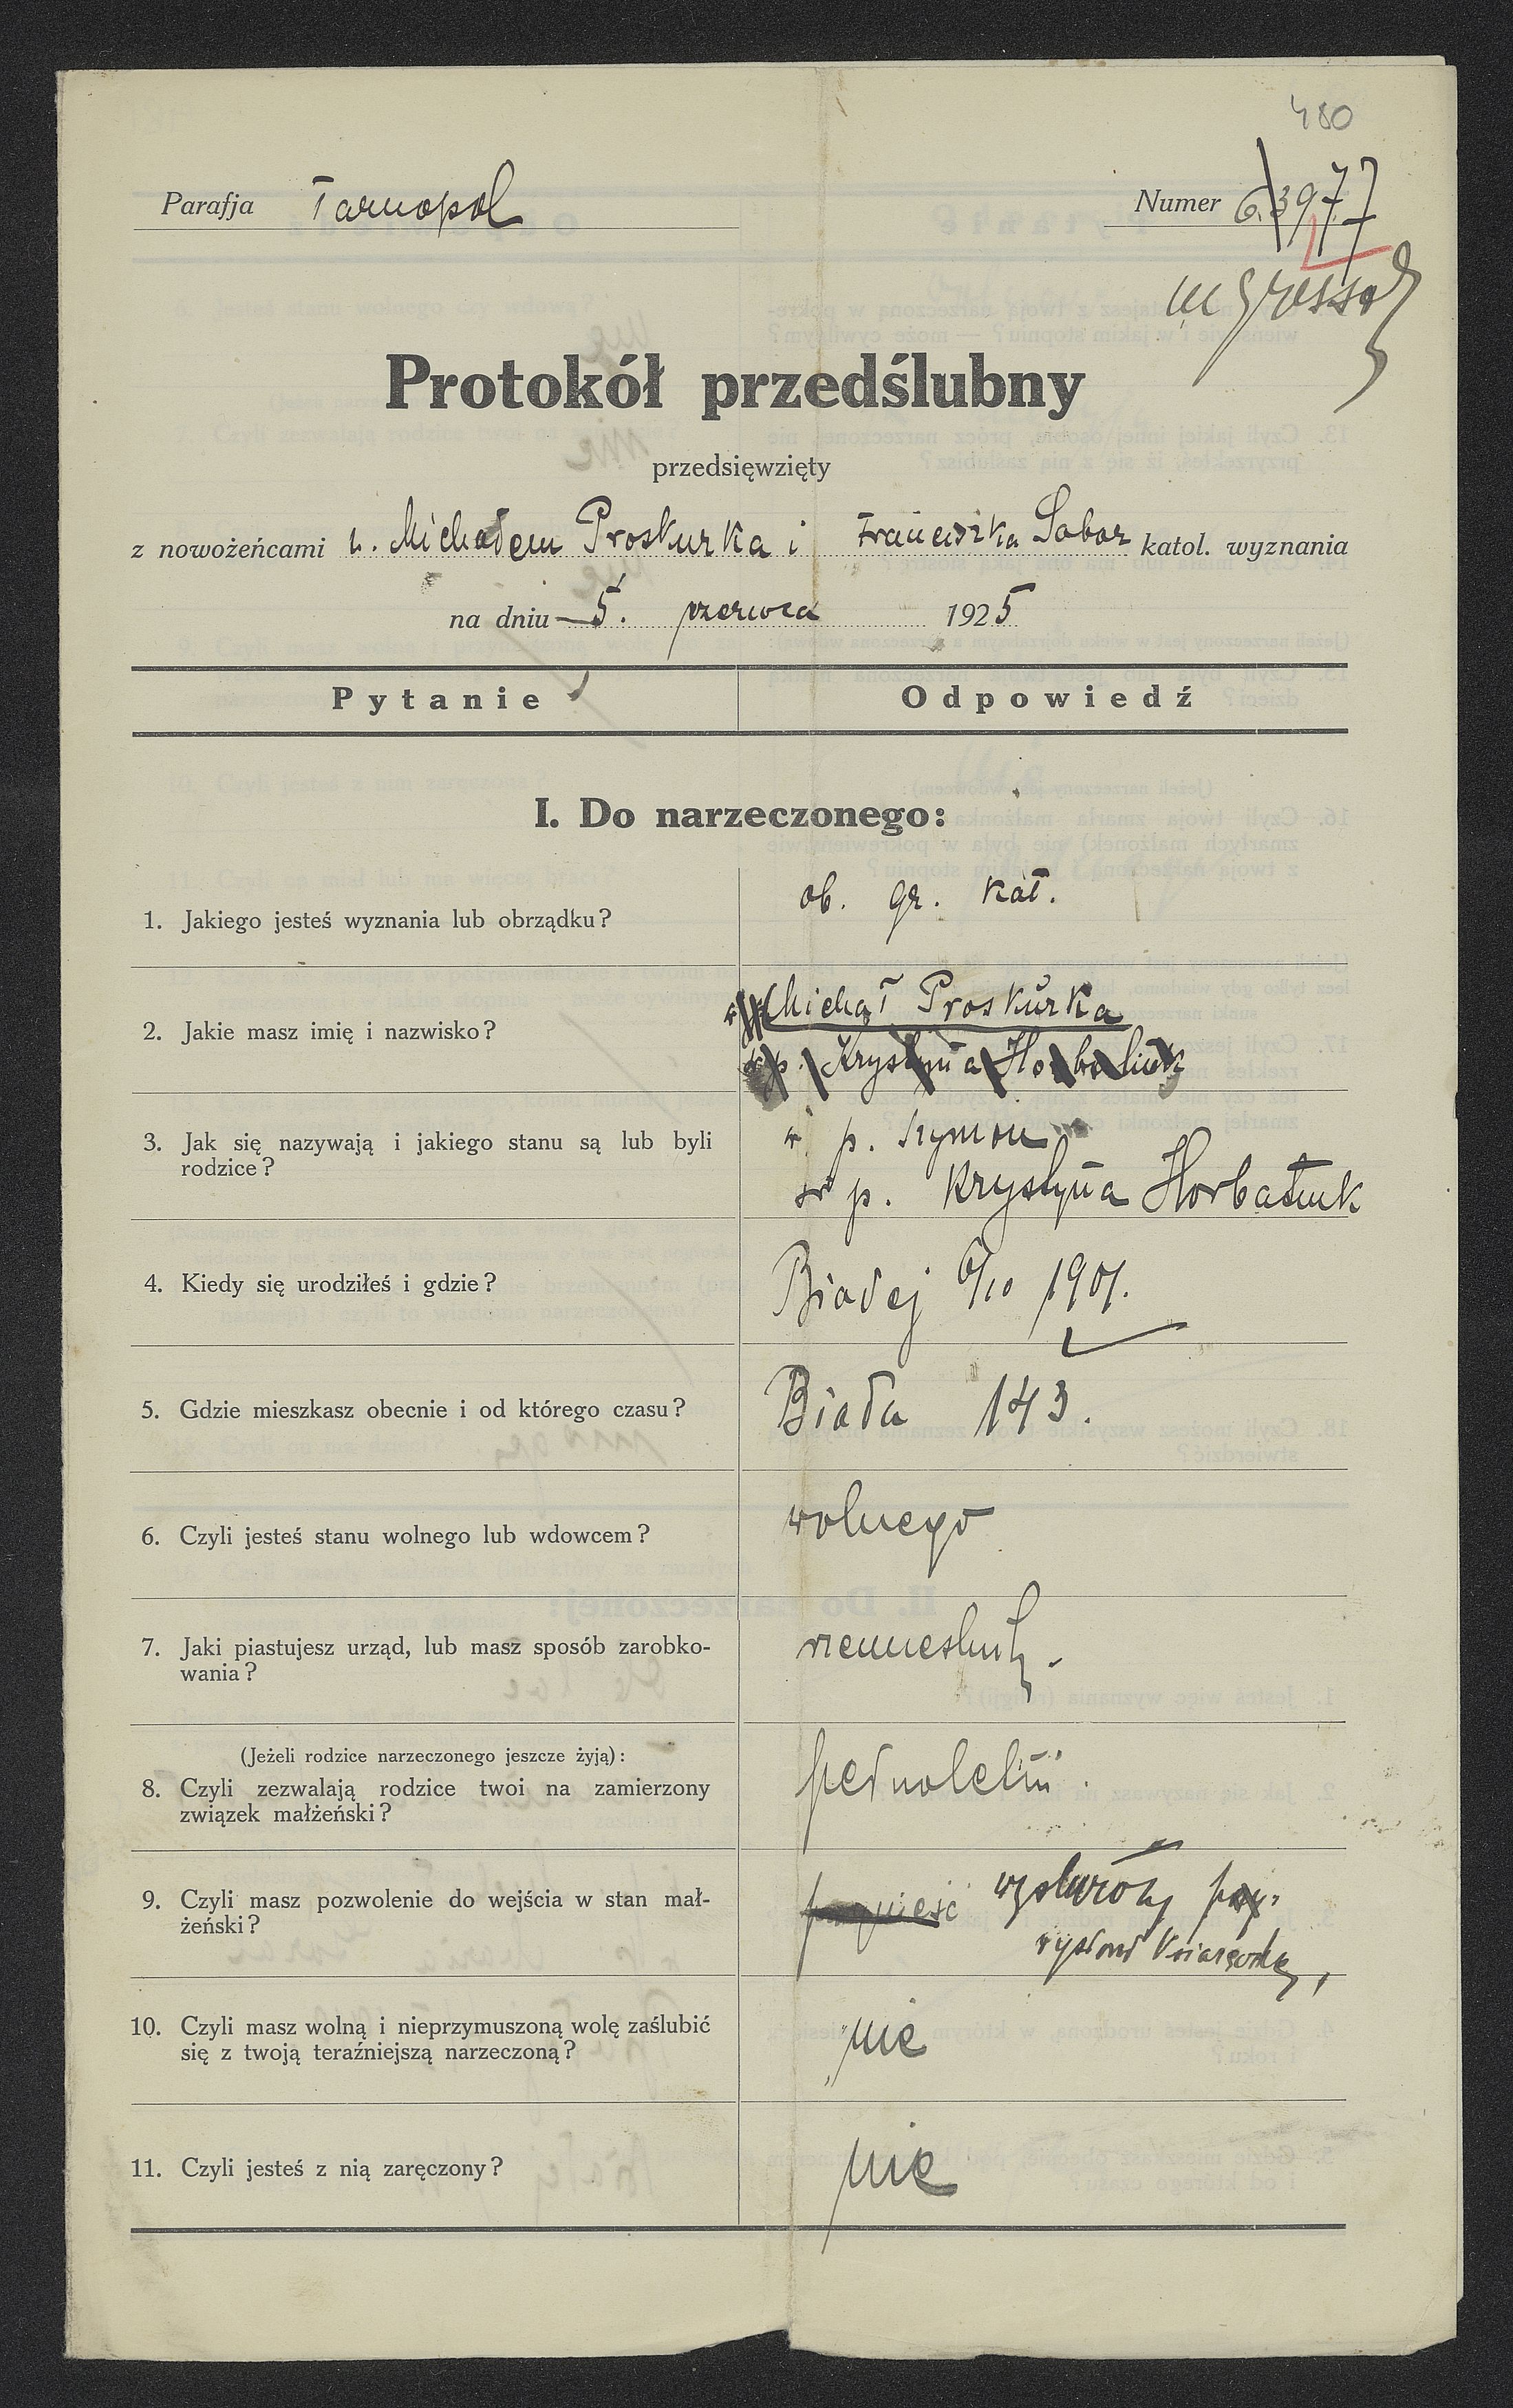 480
Parafja Tarnopol
Numer 6.3977
ingressa
Protokół przedślubny
przedsięwzięty
z nowożeńcami z. Michałem Proskurka i Franciszka Sobor katol. wyznania
na dniu 5. czerwca 1925
Pytanie Odpowiedź
I. Do narzeczonego:
1. Jakiego jesteś wyznania lub obrządku? ob. gr. kat.
2. Jakie masz imię i nazwisko? Michał Proskurka
3. Jak się nazywają i jakiego stanu są lub byli
rodzice?
ś p. Szymon
ś p. Krystyna Horbatiuk
4. Kiedy się urodziłeś i gdzie? Białej 6/10 1901.
5. Gdzie mieszkasz obecnie i od którego czasu? Biała 143.
6. Czyli jesteś stanu wolnego lub wdowcem? wolnego
7. Jaki piastujesz urząd, lub masz sposób zarobko-
wania?
rzemieślnik.
(Jeżeli rodzice narzeczonego jeszcze żyją):
8. Czyli zezwalają rodzice twoi na zamierzony
związek małżeński?
pełnoletni.
9. Czyli masz pozwolenie do wejścia w stan mał-
żeński?
10. Czyli masz wolną i nieprzymuszoną wolę zaślubić
się z twoją teraźniejszą narzeczoną?
nie
11. Czyli jesteś z nią zaręczony? nie